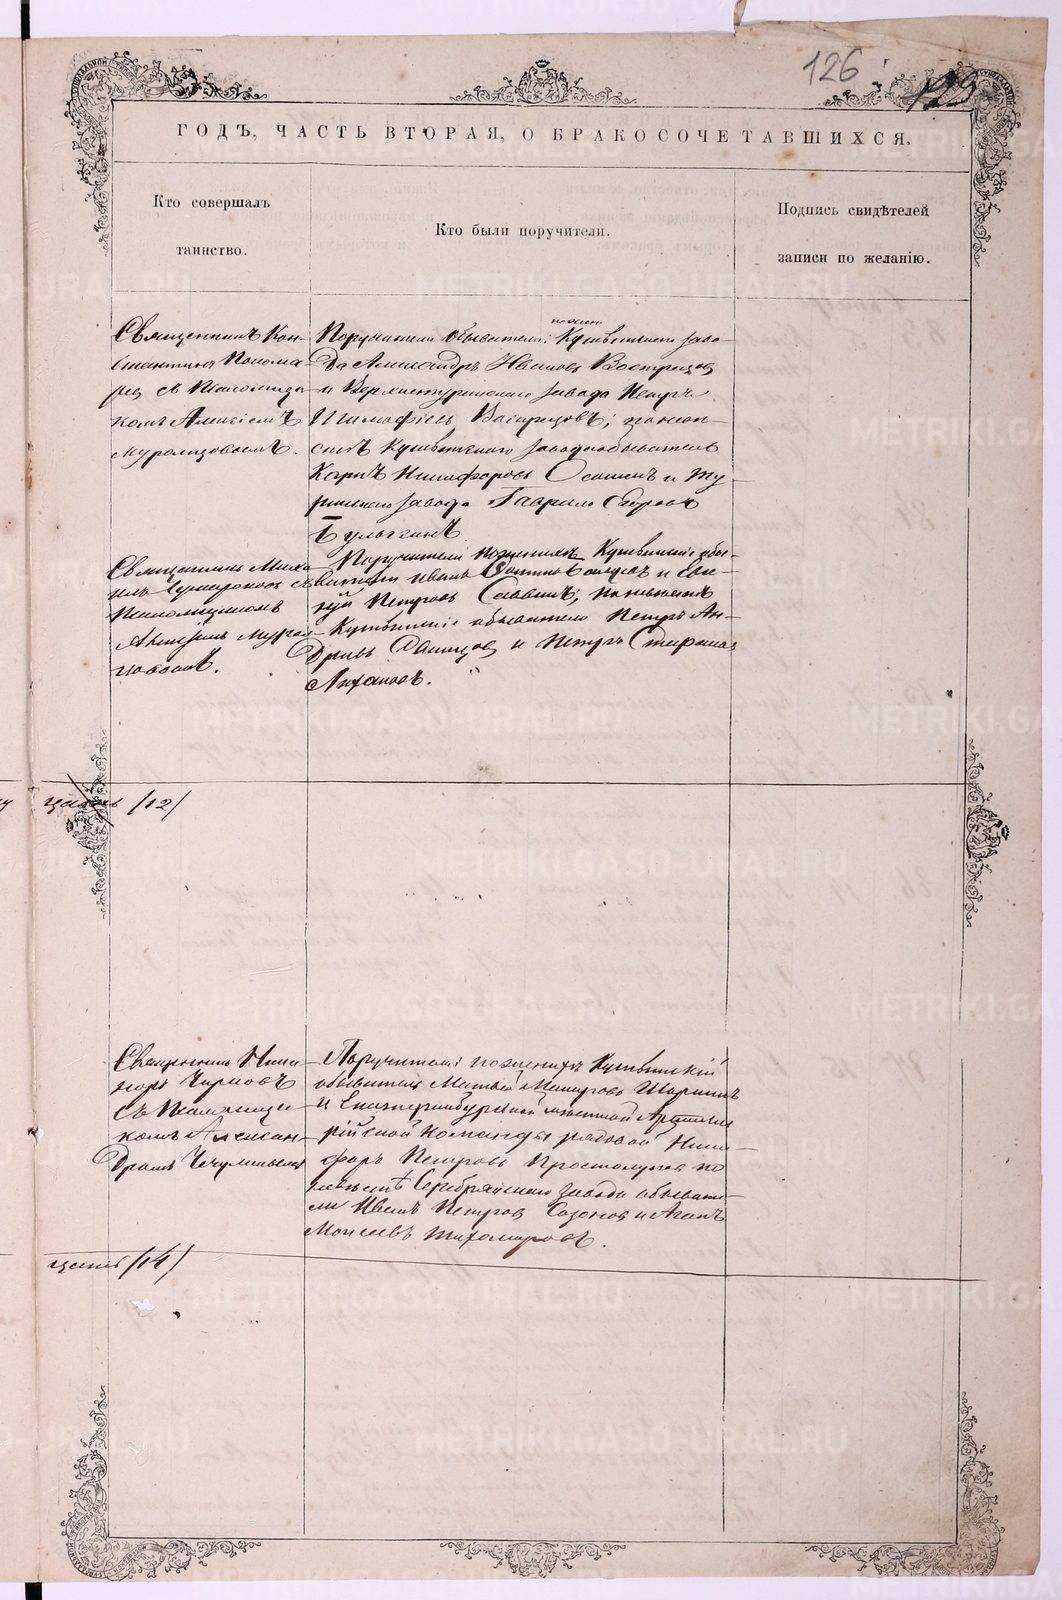 126
ГОДЪ, ЧАСТЬ ВТОРАЯ, О БРАКОСОЧЕТАВШИХСЯ.
Кто совершалъ
таинство.
Кто были поручители.
Подпись свидѣтелей
записи по желанію.
Священникъ Кон-
стантинъ Понома
рев съ Псаломщи
комъ Алексіемъ
Муромцовымъ.
по жен.
Поручители обыватели: Кушвинскаго заво-
да Александръ Ивановъ Вострецов
и Верхнетуринскаго завода Петръ
Тимофіевъ Вострецовъ; по нев-
естѣ Кушвинскаго завода обыватель
Карпъ Никифоровъ Осо и Ту
ринскаго завода Гаврило Егоровъ
Булыгинъ
Священникъ Миха
илъ съ
Псаломщикомъ
Алексіемъ Муром
цовымъ.
Поручители по женихѣ Кушвинскіе обы-
ватели Иванъ и Евге-
ній Петровъ Саввинъ; по невѣстѣ
Кушвинскіе обыватели Петръ Ан-
дреевъ и Петръ Стефановъ
Лихановъ.
/12/
Священникъ Ника
норъ Черновъ
съ Псаломщи
комъ Алексан-
дромъ Чечулинымъ
Поручители: по женихѣ Кушвинскій
обыватель Матвей
и Екатеринбургской мѣстной Артилле
рійской команды рядовой Ники
форъ Петровъ Простолуповъ по
невѣстѣ Серебрянскаго завода обывате-
ли Иванъ Петровъ Созоновъ и Агапъ
Моисеевъ Тихомировъ.
/14/
METRIKI.GASO-URAL.RU